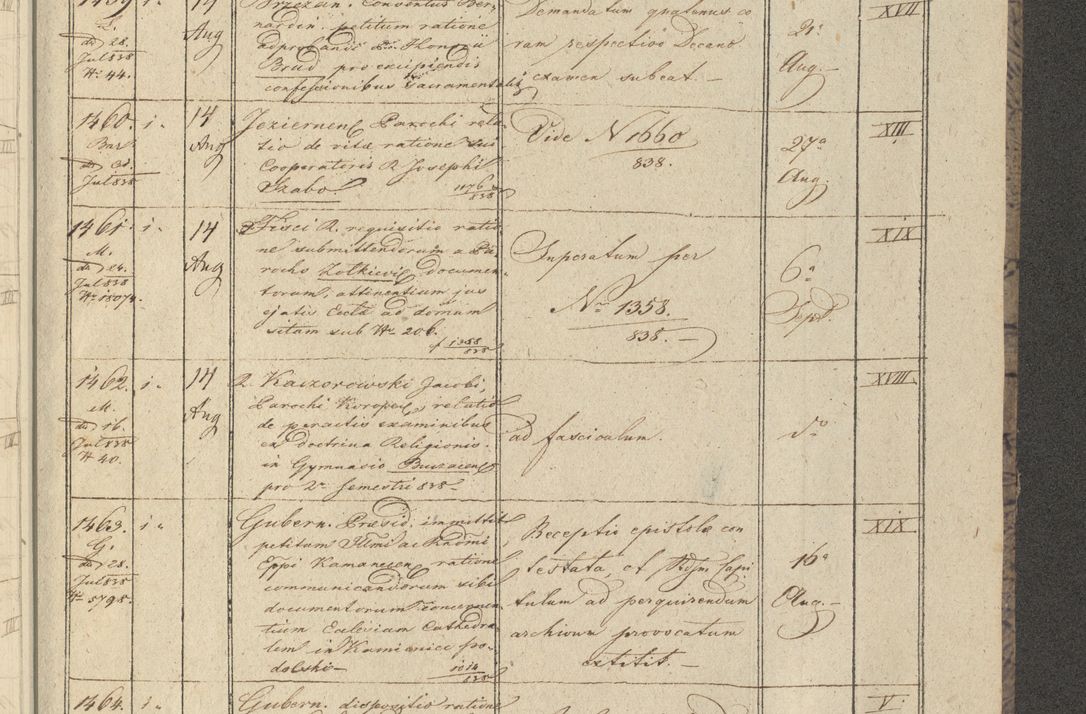 1459
L.
dto 28.
Jul 838
No 44.
1.
14
Aug
Brzezan. Conventus Ber-
nardin. petitum ratione
adprobandi Honorii
Brud pro excipiendis
confessionibus sacramentalib
Demandatum quatenus co
ram respectivo Decano
examen subeat. —
2a
Aug. —
XVII
1460.
Jul 838
1.
14
Aug
Jeziernen Parochi rela
tio de vitæ ratione sui
Cooperatoris R. Josephi
Szabo
1176
838
Vide N 1660
838.
27a
Aug.
XIII
1461.
M.
dto 24.
Jul 838
No 18074.
1.
14
Aug
Fisci R. requisitio ratio
ne submittendorum a Pa
rocho Zolkievie documen-
torum, attinentium jus
ejatis Eccla ad domum
sitam sub No 206.
cf 1388
838
Inperatum per
No 1358.
838. —
6a
Sept.
XIX
1462.
M.
dto 16.
Jul 838
N 40.
1.
14
Aug
R. Kaczorowski Jacobi
Parochi Koropec, relatio
de peractis examinibus
ex doctrina Religionis
in Gymnasio Buczacien
pro 2o semestri 838 —
ad fasciculum.
do
XVIII
1463.
G.
dto 28.
Jul 838
No 5795.
1.
Gubern. Præsid. immittit
petitum Illmi ac Radmi
Eppi Kamenecen ratione
communicandorum sibi
documentorum concernen
tium Ecclesiam Cathedra
lem in Kamieniec po-
dolski —
1014
838
Receptio epistolæ con
testata, et Rdsm Capi
tulum ad perquirendum
archivum provocatum
extitit. —
16a
Aug. —
XIX
1464.
1.
Gubern. dispositio ratione
V.